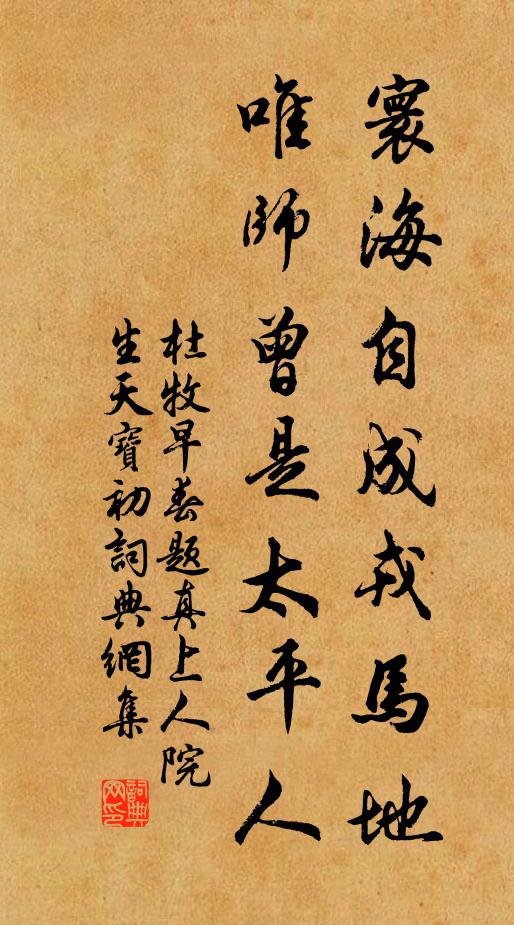 寰海自成戎馬地
唯師曾是太平人
杜牧早春題真上人院
生天寶初詞典網集
詞典網印